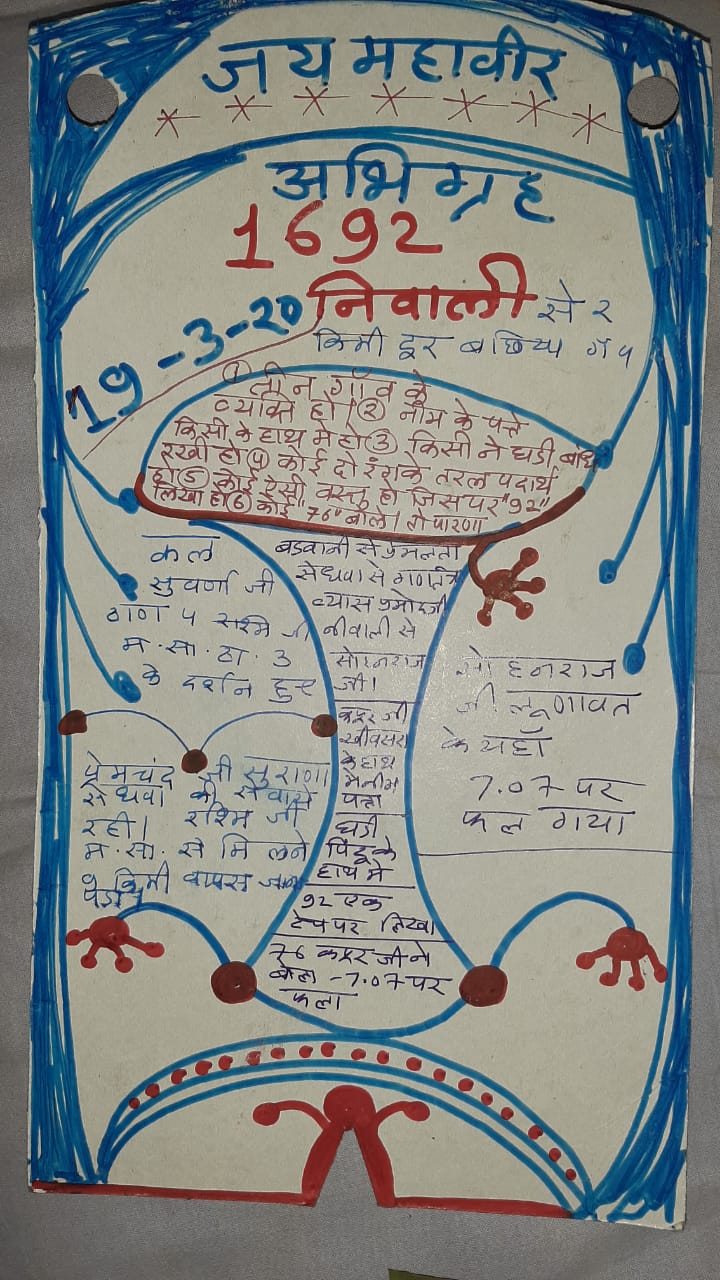 जय महावीर
अभिग्रह
1692
19-3-20
निवाली से २
किमी दूर
① तीन गाँव के
व्यक्ति हो। ② नीम के पत्ते
किसी के हाथ मे हो ③ किसी ने घडी बांध
रखी हो ④ कोई दो रंग के तरल पदार्थ
हो ⑤ कोई ऐसी वस्तु हो जिस पर "92"
लिखा हो ⑥ कोई "76" बोले। तो पारणा
कल
सुवर्णा जी
ठाणा ५ रश्मि जी
म.सा.ठा.3
के दर्शन हुए
प्रेमचंद जी सुराणा
सेंधवा की सेवाएं
रही। रश्मि जी
म.सा. से मिलने
किमी वापस जाना
पडा
बडवानी से प्रेमलता
सेंधवा से
व्यास
नीवाली से
सोहनराज
जी।
के हाथ
मे नीम
पत्ता
घडी
पिंटू के
हाथ मे
92 एक
टेप पर लिखा
76 जी ने
बोला - 7.07 पर
फला
सोहनराज
जी लूणावत
के यहाँ
7.07 पर
फल गया